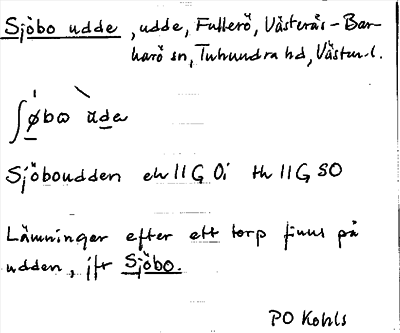 Sjöbo udde, udde, Fullerö, Västerås-Bar-
karö sn, Tuhundra hd, Västm.l.
ʃøbω ùdα
Sjöboudden ek 11 G 0i th 11 G SO
Lämningar efter ett torp finns på
udden, jfr Sjöbo.
PO Kohls